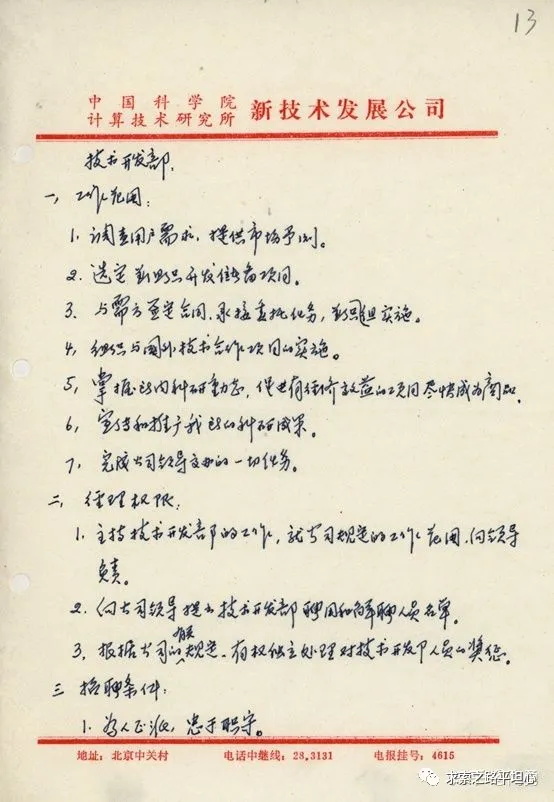 13
中国科学院
计算技术研究所 新技术发展公司
技术开发部:
一、工作范围:
1. 调查用户需求, 提供市场予测。
2. 选定并组织开发储备项目。
3. 与需方签定合同、承接委托任务, 并组织实施。
4, 组织与国外技术合作项目的实施。
5, 掌握所内科研动态, 使其有经济效益的项目尽快成为商品。
6, 宣传和推广我所的科研成果。
7, 完成公司领导交办的一切任务。
二, 经理权限:
1. 主持技术开发部的工作, 就公司规定的工作范围、向领导
负责。
2. 向公司领导提出技术开发部聘用和解聘人员名单。
3. 根据公司的有关规定、有权独立处理对技术开发部人员的奖惩。
三 招聘条件:
1. 为人正派, 忠于职守。
地址: 北京中关村 电话中继线: 28,3131 电报挂号: 4615
求索之路平坦心